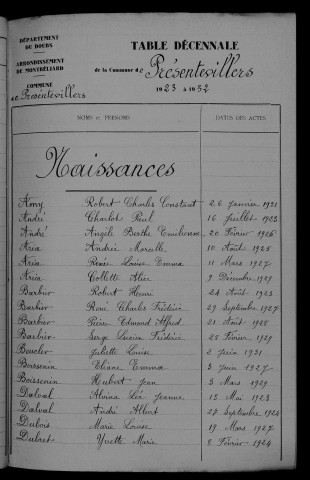 DÉPARTEMENT
DU DOUBS
ARRONDISSEMENT
DE MONTBÉLIARD
COMMUNE
de Présentevillers
TABLE DÉCENNALE
de la Commune de Présentevillers
1923 à 1932
NOMS et PRÉNOMS DATES DES ACTES
Naissances
Amy Robert Charles Constant 26 Janvier 1931
André Charlot Paul 16 Juillet 1923
André Angèle Berthe Emilienne 20 Février 1926
Aria Andrée Marcelle 10 Août 1925
Aria Renée Louise Emma 11 Mars 1927
Aria Collette Alice 9 Décembre 1929
Barbier Robert Henri 24 Août 1923
Barbier René Charles Frédéric 29 Septembre 1927
Barbier Pierre Edmond Alfred 21 Août 1928
Barbier Serge Lucien Frédéric 25 Février 1929
Boucler Juliette Louise 2 Juin 1931
Boissenin Eliane Emma 3 Juin 1927
Boissenin Hubert Jean 3 Mars 1929
Dalval Alvina Léa Jeanne 13 Mai 1923
Dalval André Albert 28 Septembre 1924
Dubois Marie Louise 19 Mars 1927
Yvette Marie 8 Février 1924